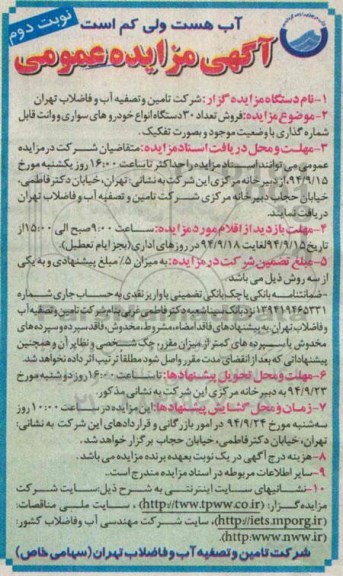 نوبت دوم
آب هست ولی کم است
آگهی مزایده عمومی
۱-نام دستگاه مزایده گزار: شرکت تامین و تصفیه آب و فاضلاب تهران
۲-موضوع مزایده: فروش تعداد ۳۰ دستگاه انواع خودرو های سواری و وانت قابل
شماره گذاری با وضعیت موجود و بصورت تفکیک.
۳-مهلت و محل دریافت اسناد مزایده: متقاضیان شرکت در مزایده
عمومی می توانند اسناد مزایده را حداکثر تا ساعت ۱۶:۰۰ روز یکشنبه مورخ
۹۴/۹/۱۵، از دبیر خانه مرکزی این شرکت به نشانی: تهران، خیابان دکتر فاطمی،
خیابان حجاب دبیر خانه مرکزی شرکت تامین و تصفیه آب و فاضلاب تهران
دریافت نمایند.
۴-مهلت بازدید از اقلام مورد مزایده: ساعت ۹:۰۰ صبح الی ۱۵:۰۰ از
تاریخ ۹۴/۹/۱۵ لغایت ۹۴/۹/۱۸ در روز های اداری (بجز ایام تعطیل).
۵-مبلغ تضمین شرکت در مزایده: به میزان ۵٪ مبلغ پیشنهادی و به یکی
از سه روش ذیل می باشد.
-ضمانتنامه بانکی یا چک بانکی تضمینی یا واریز نقدی به حساب جاری شماره
۱۲۹۴۱۹۴۶۵۳۳۱ نزد بانک ملت شعبه دکتر فاطمی غربی بنام شرکت تامین و تصفیه آب
و فاضلاب تهران. به پیشنهاد های فاقد امضاء، مشروط، مخدوش، فاقد سپرده و سپرده های
مخدوش یا سپرده های کمتر از میزان مقرر، چک شخصی و نظایر آن و همچنین
پیشنهاداتی که بعد از انقضای مدت مقرر واصل شود مطلقاً ترتیب اثر داده نخواهد شد.
۶-مهلت و محل تحویل پیشنهاد ها: تا ساعت ۱۶:۰۰ روز دوشنبه مورخ
۹۴/۹/۲۳ به دبیر خانه مرکزی این شرکت به نشانی مذکور.
۷-زمان و محل گشایش پیشنهاد ها: این مزایده در ساعت ۱۰:۰۰ روز
سه شنبه مورخ ۹۴/۹/۲۴ در امور بازرگانی و قرارداد های این شرکت به نشانی:
تهران، خیابان دکتر فاطمی، خیابان حجاب برگزار خواهد شد.
۸-هزینه درج آگهی در یک نوبت بعهده برنده مزایده می باشد.
۹-سایر اطلاعات مربوطه در اسناد مزایده مندرج است.
۱۰-نشانیهای سایت اینترنتی به شرح ذیل: سایت شرکت
مزایده گزار: (http://www.tpww.co.ir)، سایت ملی مناقصات:
(http://iets.mporg.ir)، سایت شرکت مهندسی آب وفاضلاب کشور:
(http:/www.nww.ir)
شرکت تامین و تصفیه آب و فاضلاب تهران (سهامی خاص)